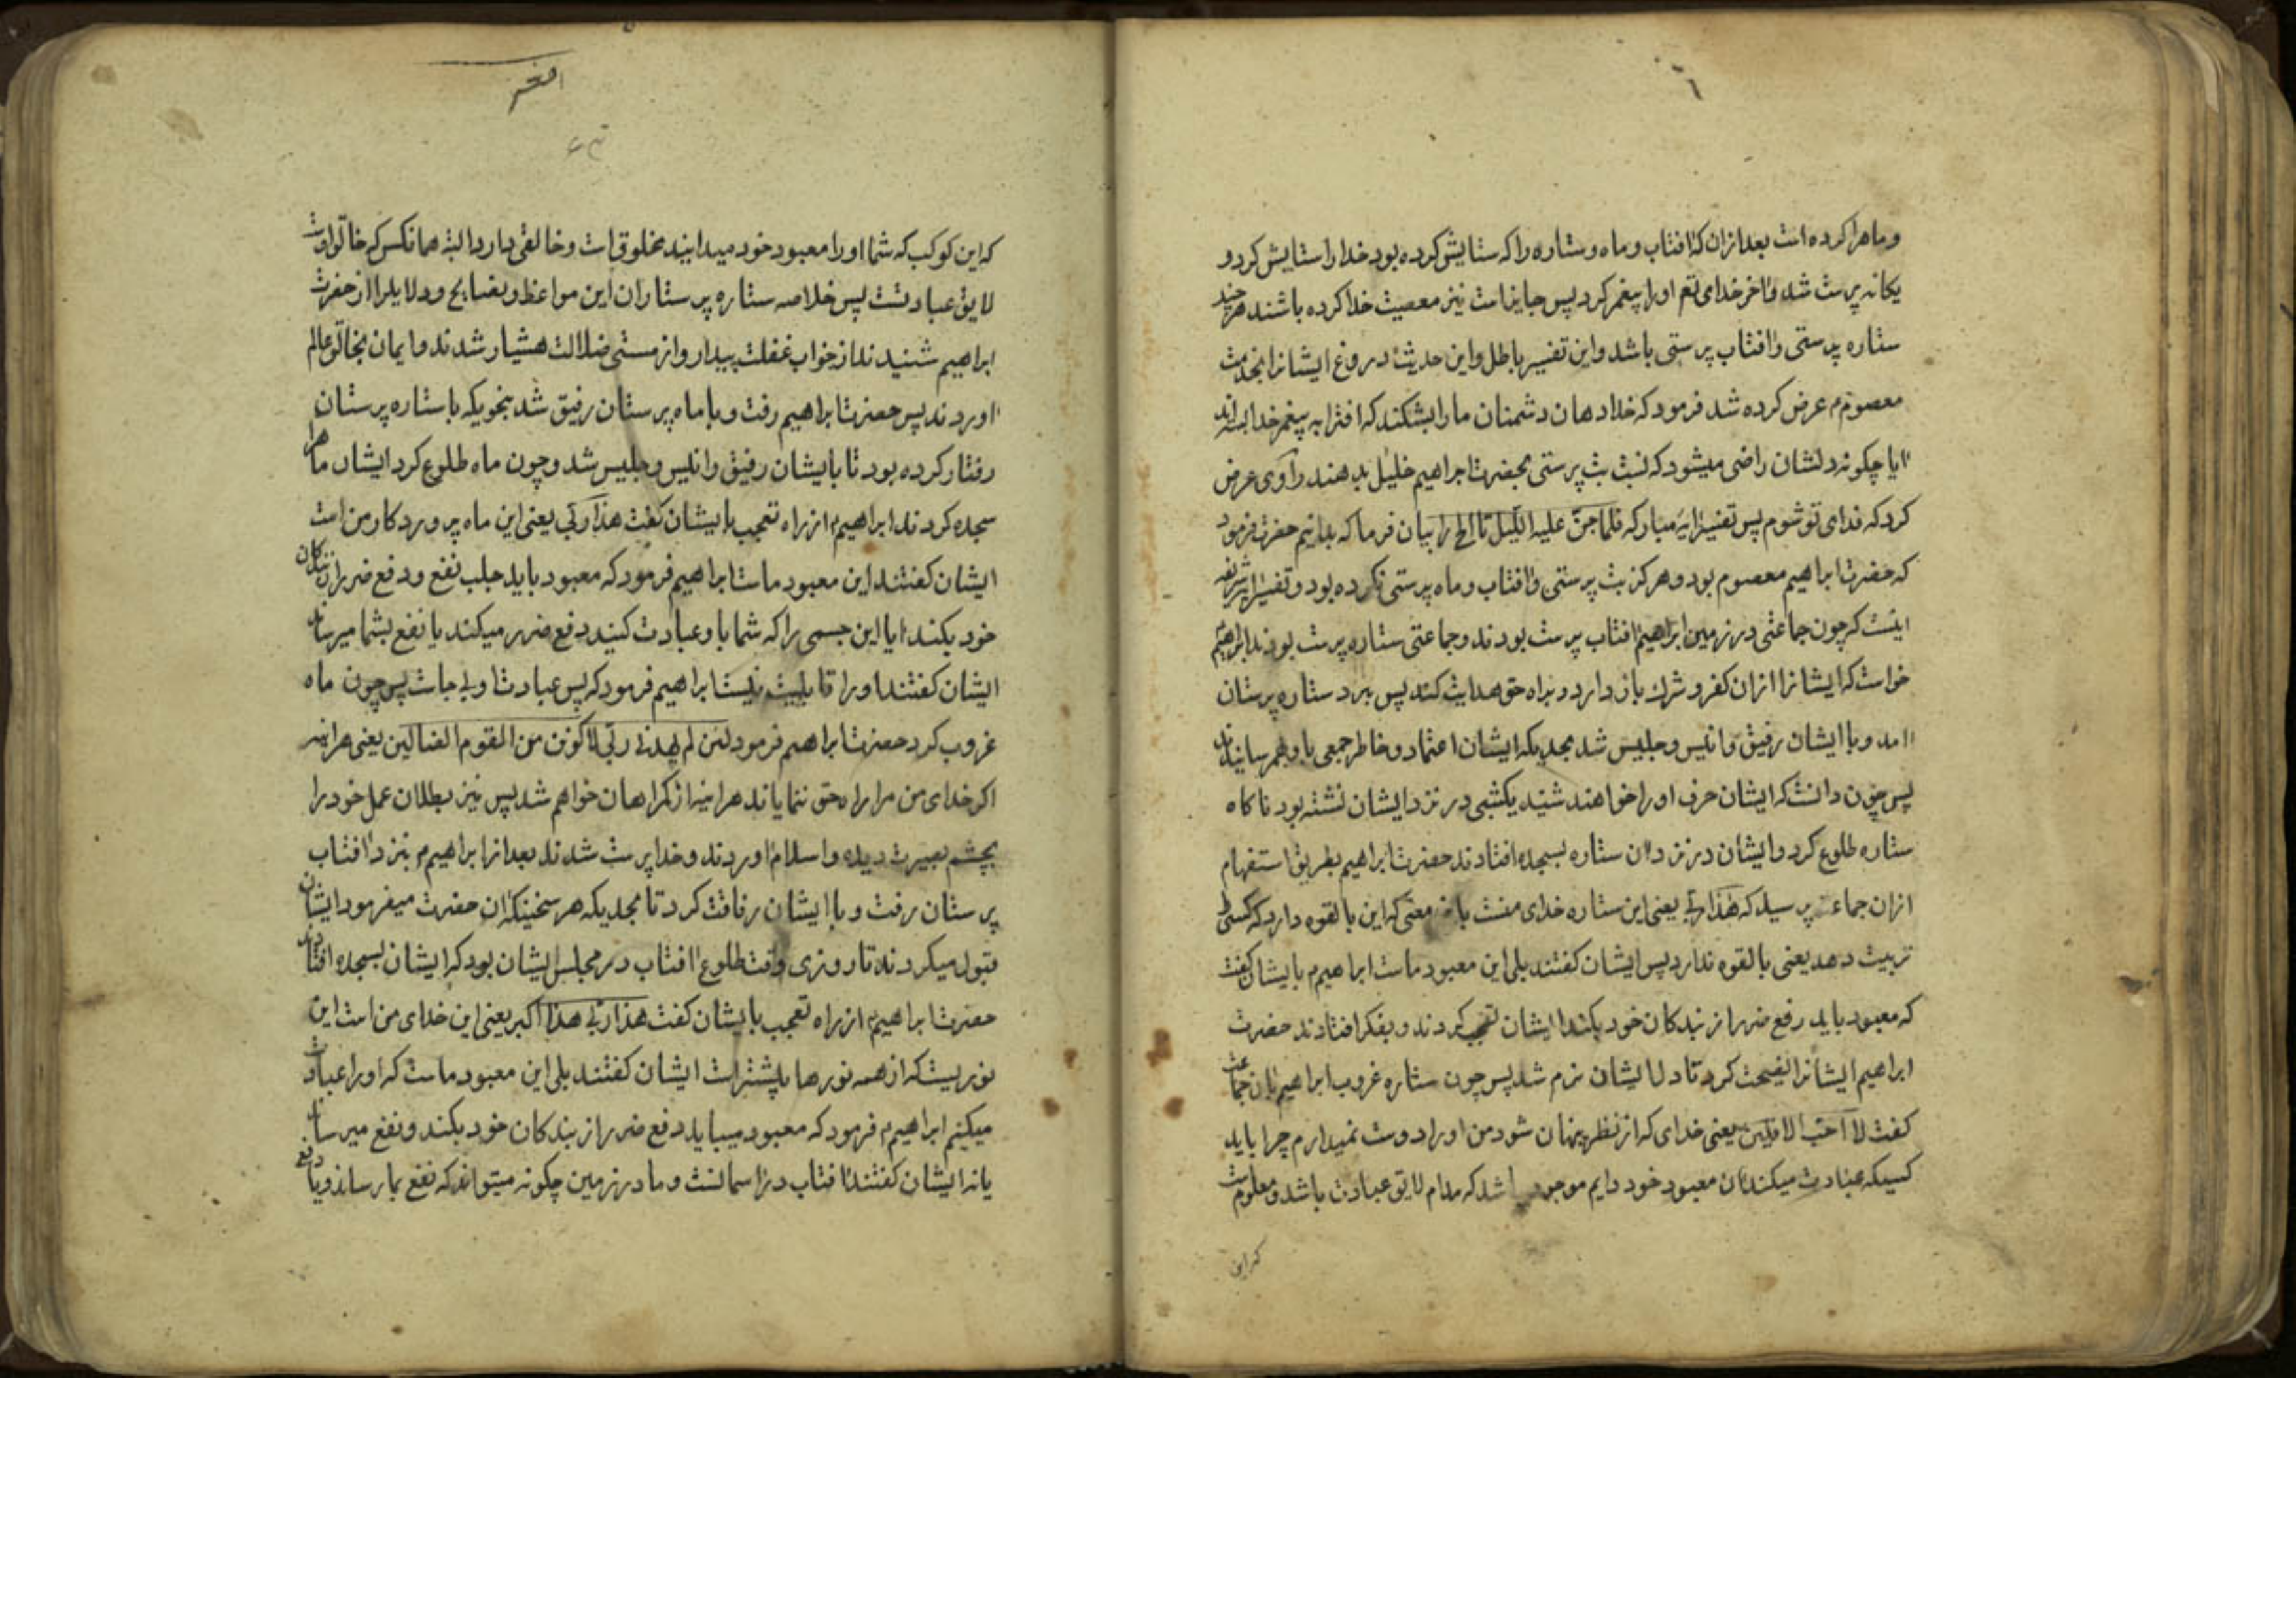 و ماهرا کرده است بعد ازان که افتاب و ماه و ستاره را که ستایش کرده بود خدا را ستایش کرد و
یکانه پرست شد و اخر خدای تع اورا پیغمبر کرد پس جایز است نیز معصیت خدا کرده باشند هرچند
ستاره پرستی و افتاب پرستی باشد و این تفسیر باطل و این حدیث دروغ ایشانرا بخدمت
معصوم م عرض کرده شد فرمود که خدا دهان دشمنان ما را بشکند که افترا به پیغمبر خدا بسته اند
ایا چکونه دلشان راضی میشود که نسبت بت پرستی بحضرت ابراهیم خلیل بدهند راوی عرض
کرد که فدای تو شوم پس تفسیر ایه مبارکه فلما جن علیه اللیل تا الخ را بیان فرما که بدانیم حضرت فرمود
که حضرت ابراهیم معصوم بود و هرکز بت پرستی و افتاب و ماه پرستی نکرده بود و تفسیر ایه شریفه
اینست که چون جماعتی در زمین ابراهیم افتاب پرست بودند و جماعتی ستاره پرست بودند ابراهیم
خواست که ایشانرا ازان کفر و شرک باز دارد و براه حق هدایت کند پس نزد ستاره پرستان
امد و با ایشان رفیق و انیس و جلیس شد بحدیکه ایشان اعتماد و خاطر جمعی باو بهم رسانیدند
پس چون دانست که ایشان حرف اورا خواهند شنید یکشبی در نزد ایشان نشسته بود ناکاه
ستاره طلوع کرد و ایشان در نزد ان ستاره بسجده افتادند حضرت ابراهیم بطریق استفهام
ازان جماعت پرسید که هذا ربی یعنی این ستاره خدای منست باین معنی که این بالقوه دارد که کسی را
تربیت دهد یعنی بالقوه ندارد پس ایشان کفتند بلی این معبود ماست ابراهیم م بایشان کفت
که معبود باید رفع ضرر از بندکان خود بکند ایشان تعجب کردند و بفکر افتادند حضرت
ابراهیم ایشانرا نصیحت کرد تا دل ایشان نرم شد پس چون ستاره غروب ابراهیم بان جماعت
کفت لا احب الافلین یعنی خدای که از نظر پنهان شود من اورا دوست نمیدارم چرا باید
کسیکه عبادت میکند ان معبود خود دایم موجود باشد که مدام لایق عبادت باشد و معلومست
که این
که این کوکب که شما اورا معبود خود میدانید مخلوق است و خالقی دارد البته همانکس که خالق اوست
لایق عبادتست پس خلاصه ستاره پرستاران این مواعظ و نصایح و دلایلرا از حضرت
ابراهیم شنیدند از خواب غفلت بیدار و از مستی ضلالت هشیار شدند و ایمان بخالق عالم
اوردند پس حضرت ابراهیم رفت و با ماه پرستان رفیق شد بنحویکه با ستاره پرستان
رفتار کرده بود تا بایشان رفیق و انیس و جلیس شد و چون ماه طلوع کرد ایشان ماهرا
سجده کردند ابراهیم م از راه تعجب بایشان کفت هذا ربی یعنی این ماه پروردکار من است
ایشان کفتند این معبود ماست ابراهیم فرمود که معبود باید جلب نفع و دفع ضرر از بندکان
خود بکند ایا این جسمی را که شما باو عبادت کنید دفع ضرر میکند یا نفع بشما میرساند
ایشان کفتند اورا قابلیت نیست ابراهیم فرمود که پس عبادت او بی جاست پس چون ماه
غروب کرد حضرت ابراهیم فرمود لئن لم یهدنی ربی لاکونن من القوم الضالین یعنی هراینه
اکر خدای من مرا راه حق ننمایاند هراینه از کمراهان خواهم شد پس نیز بطلان عمل خود را
بچشم بصیرت دیده و اسلام اوردند و خدا پرست شدند بعد از ابراهیم م بنزد افتاب
پرستان رفت و با ایشان رفاقت کرد تا بحدیکه هر سخنیکه ان حضرت میفرمود ایشان
قبول میکردند تا روزی وقت طلوع افتاب در مجلس ایشان بود که ایشان بسجده افتادند
حضرت ابراهیم م از راه تعجب بایشان کفت هذا ربی هذا اکبر یعنی این خدای من است این
نوریست که از همه نورها بیشتر است ایشان کفتند بلی این معبود ماست که اورا عبادت
میکنیم ابراهیم م فرمود که معبود میباید دفع ضرر از بندکان خود بکند و نفع میرساند
یا نه ایشان کفتند افتاب در اسمانست و ما در زمین چکونه میتواند که نفع بما رساند و یا دفع